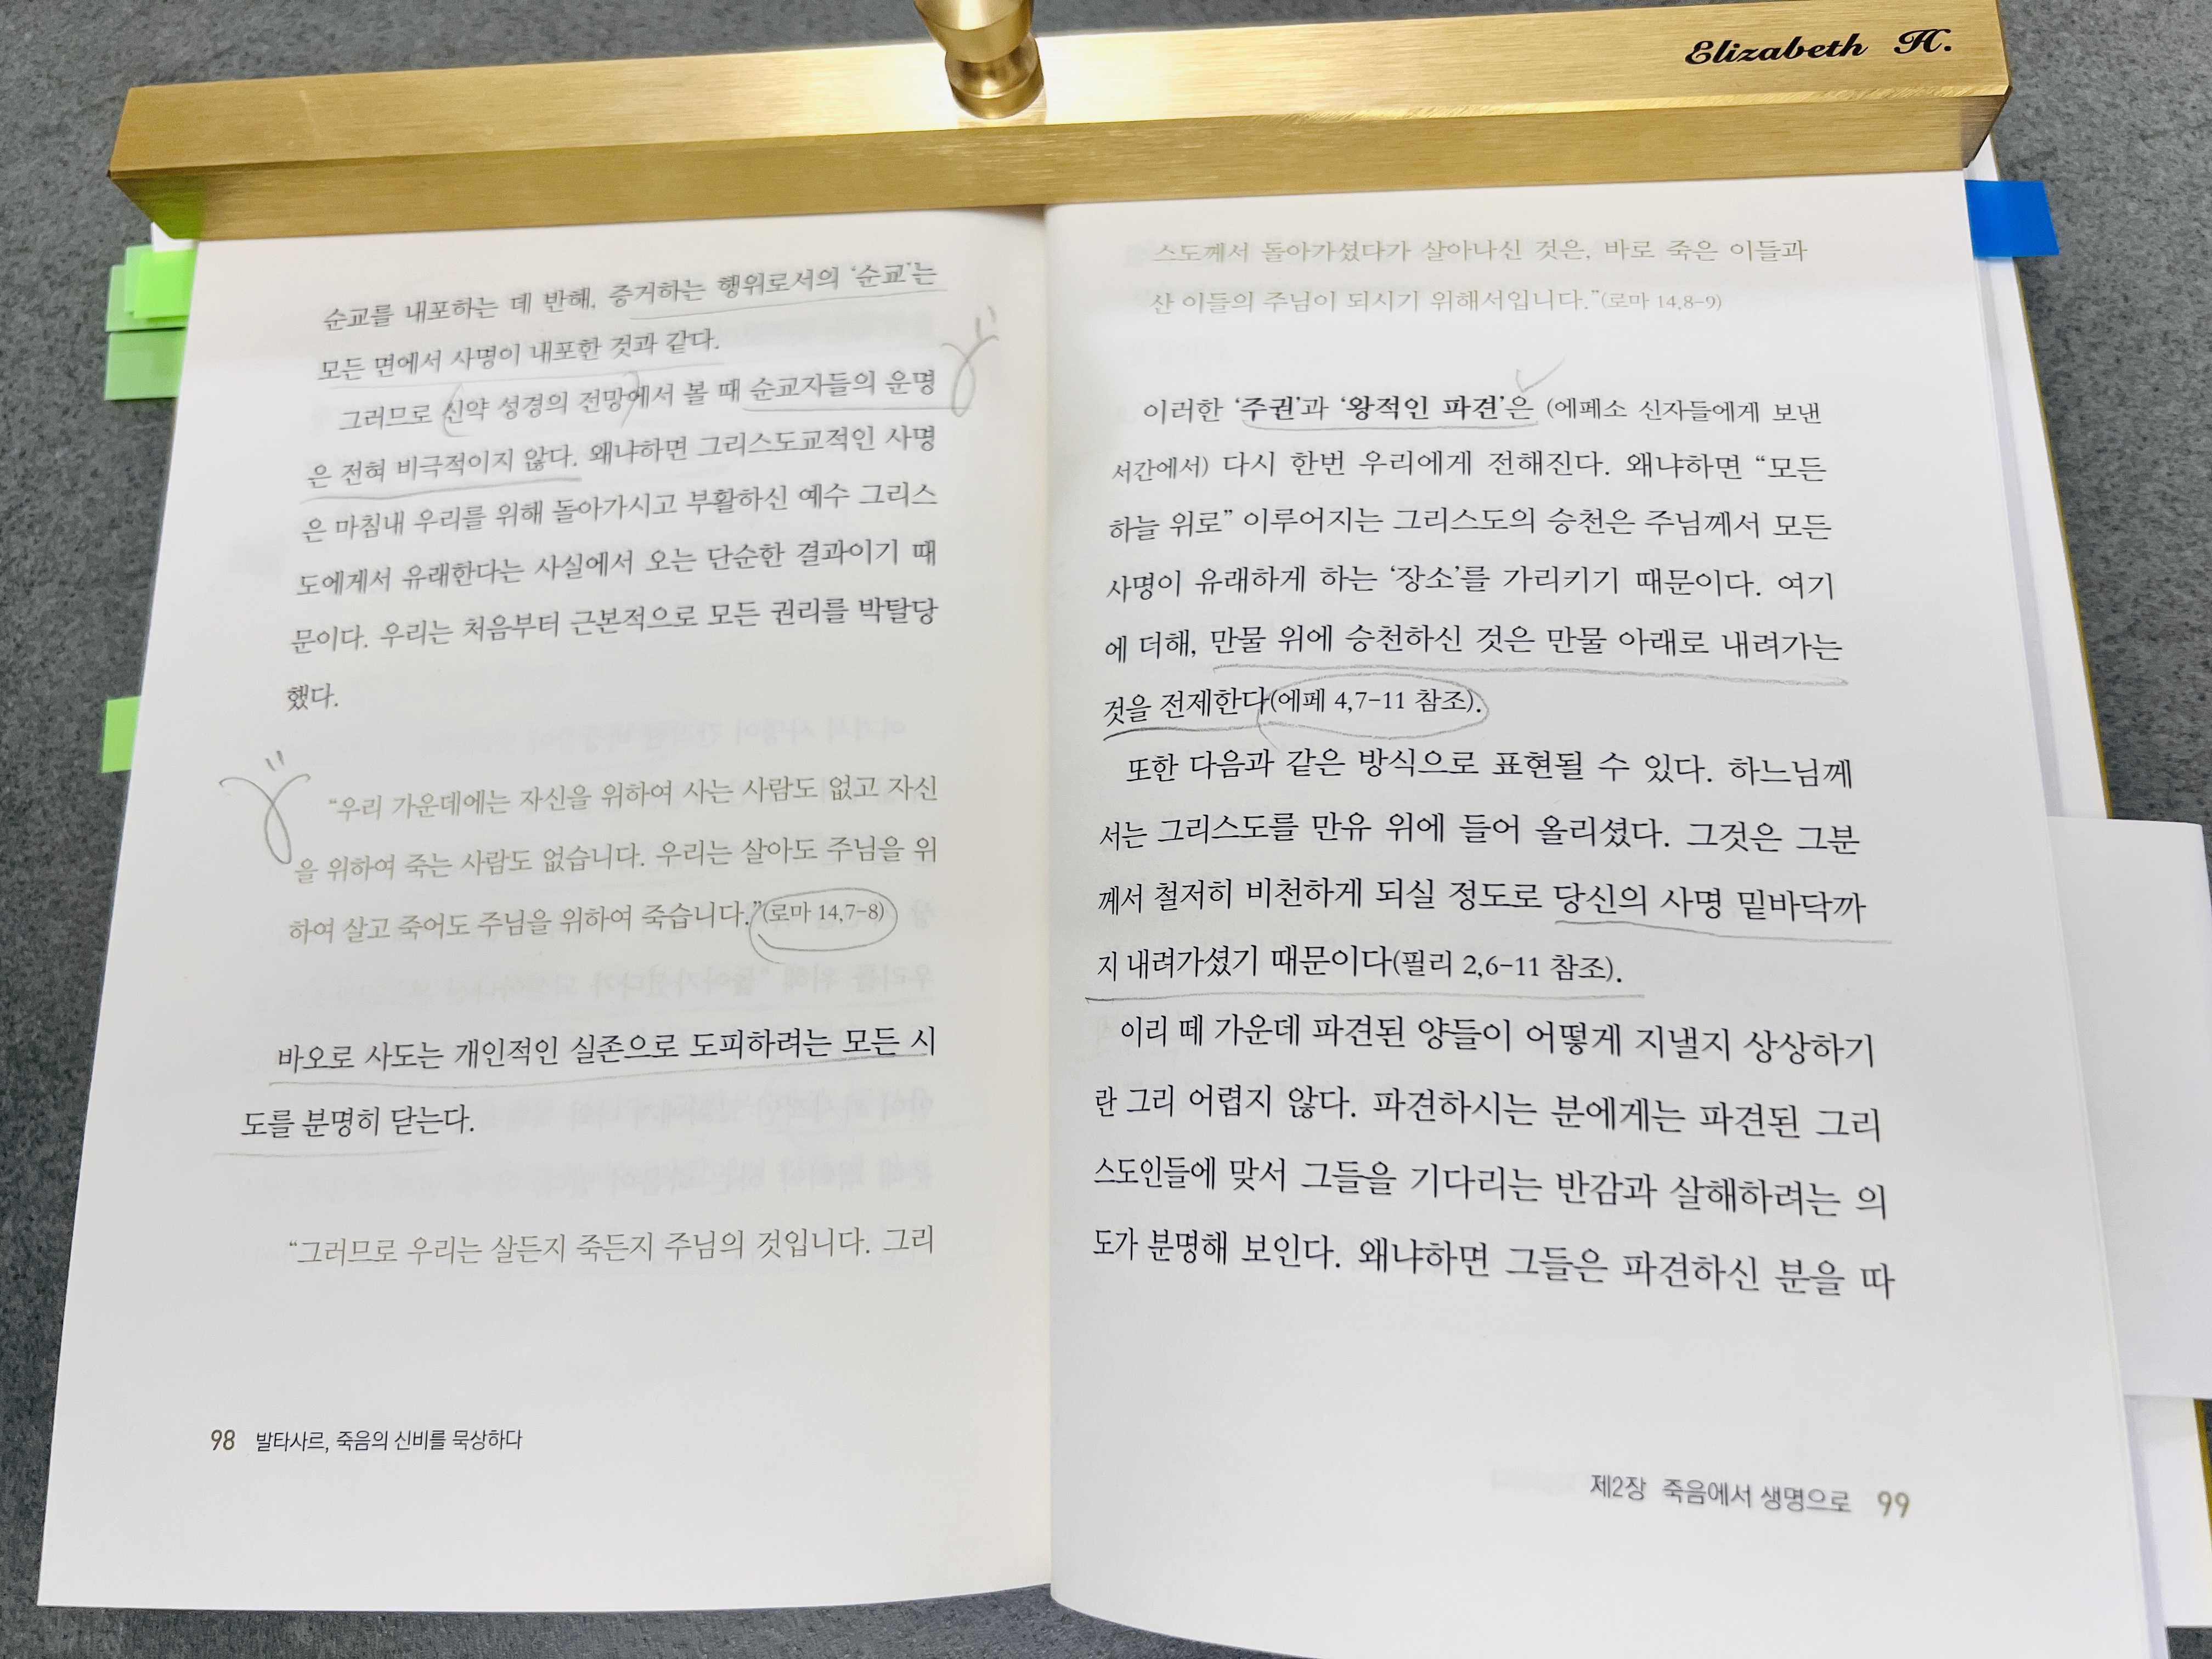 Elizabeth H.
순교를 내포하는 데 반해, 증거하는 행위로서의 ‘순교’는
모든 면에서 사명이 내포한 것과 같다.
그러므로 신약 성경의 전망에서 볼 때 순교자들의 운명
은 전혀 비극적이지 않다. 왜냐하면 그리스도교적인 사명
은 마침내 우리를 위해 돌아가시고 부활하신 예수 그리스
도에게서 유래한다는 사실에서 오는 단순한 결과이기 때
문이다. 우리는 처음부터 근본적으로 모든 권리를 박탈당
했다.
“우리 가운데에는 자신을 위하여 사는 사람도 없고 자신
을 위하여 죽는 사람도 없습니다. 우리는 살아도 주님을 위
하여 살고 죽어도 주님을 위하여 죽습니다.”(로마 14,7-8)
바오로 사도는 개인적인 실존으로 도피하려는 모든 시
도를 분명히 닫는다.
“그러므로 우리는 살든지 죽든지 주님의 것입니다. 그리
98 발타사르, 죽음의 신비를 묵상하다
스도께서 돌아가셨다가 살아나신 것은, 바로 죽은 이들과
산 이들의 주님이 되시기 위해서입니다.”(로마 14,8-9)
이러한 ‘주권’과 ‘왕적인 파견’은 (에페소 신자들에게 보낸
서간에서) 다시 한번 우리에게 전해진다. 왜냐하면 “모든
하늘 위로” 이루어지는 그리스도의 승천은 주님께서 모든
사명이 유래하게 하는 ‘장소’를 가리키기 때문이다. 여기
에 더해, 만물 위에 승천하신 것은 만물 아래로 내려가는
것을 전제한다(에페 4,7-11 참조).
또한 다음과 같은 방식으로 표현될 수 있다. 하느님께
서는 그리스도를 만유 위에 들어 올리셨다. 그것은 그분
께서 철저히 비천하게 되실 정도로 당신의 사명 밑바닥까
지 내려가셨기 때문이다(필리 2,6-11 참조).
이리 떼 가운데 파견된 양들이 어떻게 지낼지 상상하기
란 그리 어렵지 않다. 파견하시는 분에게는 파견된 그리
스도인들에 맞서 그들을 기다리는 반감과 살해하려는 의
도가 분명해 보인다. 왜냐하면 그들은 파견하신 분을 따
제2장 죽음에서 생명으로 99